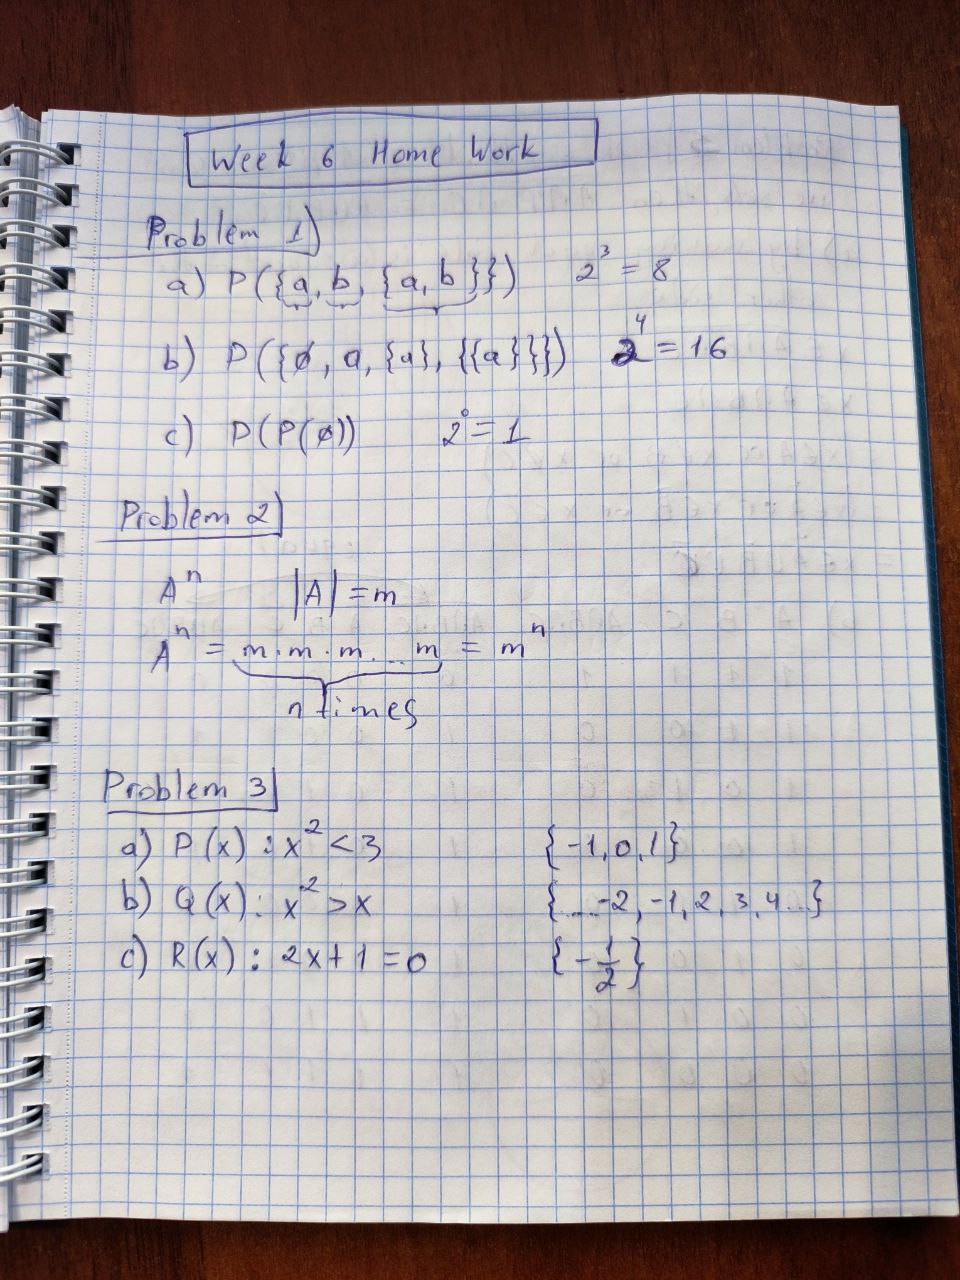 Week 6 Home Work
Problem 1)
a) P({a, b, {a, b}}) 2³ = 8
b) P({∅, a, {a}, {{a}}}) 2⁴ = 16
c) P(P(∅)) 2⁰ = 1
Problem 2
Aⁿ |A| = m
Aⁿ = m · m · m · ... m = mⁿ
n times
Problem 3
a) P(x) : x² < 3 {-1, 0, 1}
b) Q(x) : x² > x {... -2, -1, 2, 3, 4 ...}
c) R(x) : 2x + 1 = 0 {-1/2}